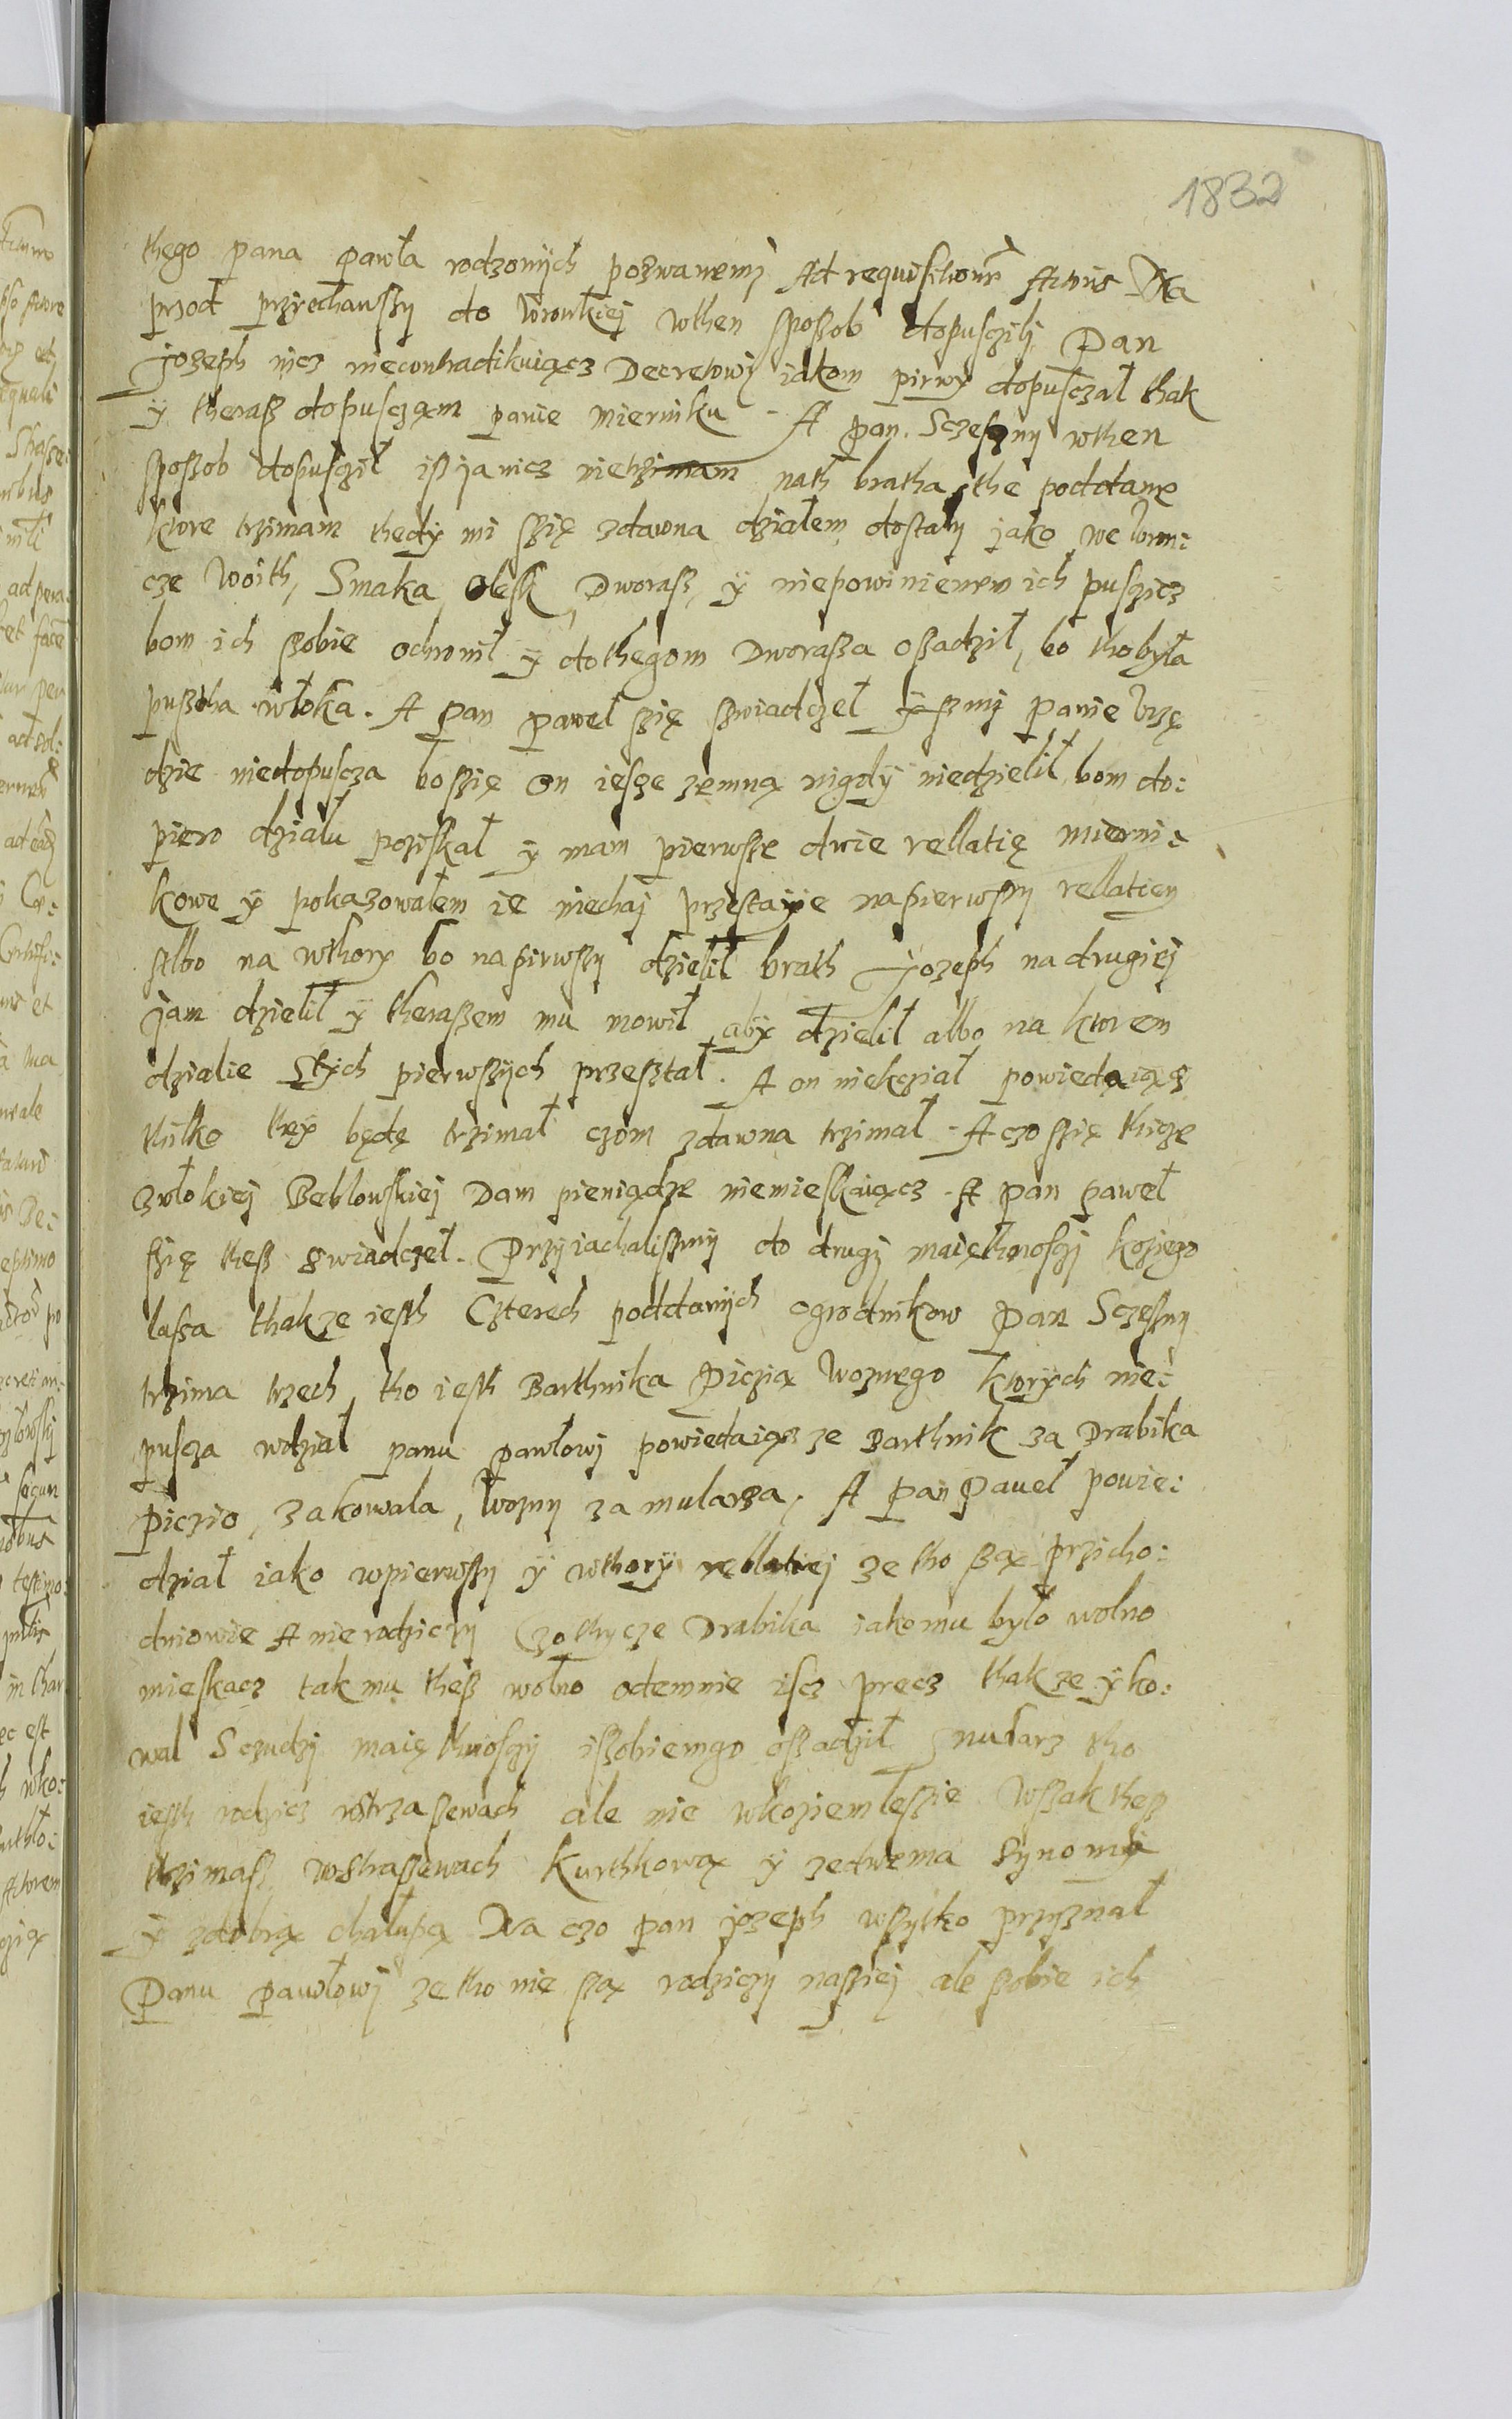 1832
thego pana pawła rodzonych pozwanemj Ad requisitionē Actoris Na
przod przyiechawszy do wthen sposob dopusczili Pan
Jozeph nicz niecontradikuiącz Decretowj iakom pirwy dopusczał thak
y theraß dopusczam panie Mierniku - A pan Sczesny wthen
sposob dopusczil iß ja nicz nietrzimam nath bratha, the poddane
ktore trzimam thedy mi szię zdawna działem dostały jako we
cze Woith, Smaka, Olesk, Dworaß, y niepowinienem ich pusczicz
bom ich sobie y dothegom Dworaßa osadził, bo tho była
pustha włoka. A pan paweł szię swiadczeł panie Vrzę
dzie niedopuscza boszię on iescze zemną nigdy niedzielił, bom do:
piero działu poziskał y mam pierwsze dwie rellatię mierni:
kowe y pokazowałem ie niechaj przestaiie napierwszy rellatiey
Albo na wthory bo napirwszy dzielił brath Jozeph nadrugiej
jam dzielił y theraßem mu mowił aby dzielił albo na ktorem
dzialie stych pierwszych przestał. A on niekcział powiedaiącz
thilko they będę trzimał czom zdawna trzimał - A czo szię thicze
zwłokiej Beblowskiej Dam pieniądze niemieszkaiącz - A pan paweł
szię theß swiadczeł. Przyiachaliszmy do drugj maięthnoscj koziego
lassa thakze iesth Czterech poddanych ogrodnikow Pan Sczesny
trzima trzech, tho iesth Barthnika Piczią Woznego ktorych nie:
puscza wdział panu pawłowj powiedaiącz ze Barthnik za Drabika
Piczio, zakowala, Wozny za mularza, A pan Paweł powie:
dział iako wpierwszy y wthory rellatiej ze tho są przicho:
dniowie A nie rodziczy Czo thycze Drabika iako mu było wolno
mieskacz tak mu theß wolno odemnie iscz precz thakze y ko:
wal Sczudzj maięthnosczy isobiemgo ossadził Mularz tho
iesth rodzicz wstrzaszewach ale nie wkoziemleszie Wszak theß
trzimaß wstraszewach Kurthkową y zedwema synomy
y zdobrą chałupą Na czo pan jozeph wszytko przyznał
Panu pawłowj ze tho nie są rodziczy nassiej ale sobie ich